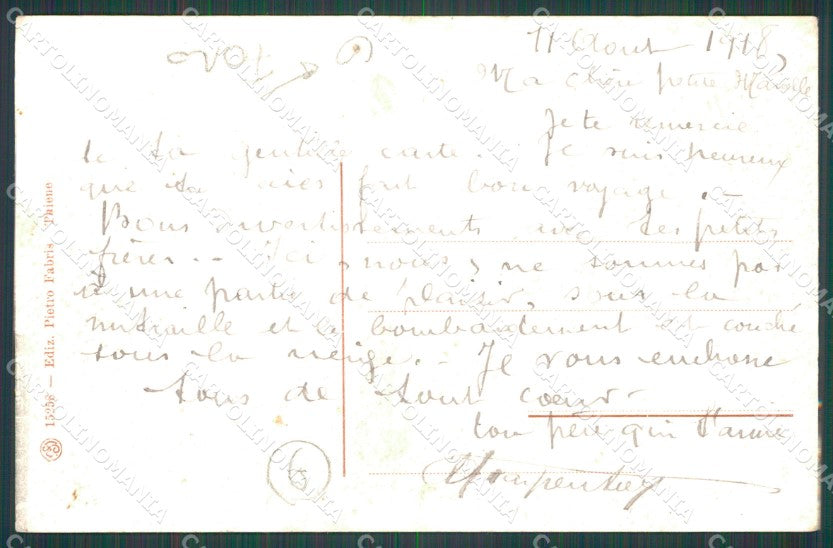 11 Aout 1918,
Ma chère petite
Je te remercie
de ta gentille carte. Je suis heureux
que tu aies fait bon voyage.
Bons avertissements avec tes petits
frères.. Ici, nous, ne sommes pas
à une partie de plaisir, sous la
mitraille et le bombardement et couché
sous la neige. - Je vous embrasse
tous de tout coeur -
ton père qui t'aime
15258 — Ediz. Pietro Fabris - Thiene
CARTOLINOMANIA